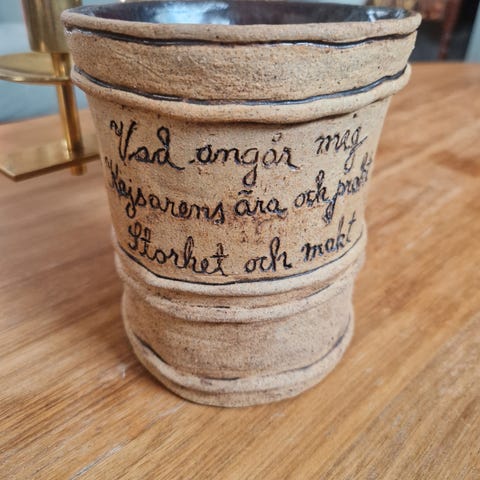 Vad angår mig
Kajsarens ära och prakt
Storhet och makt